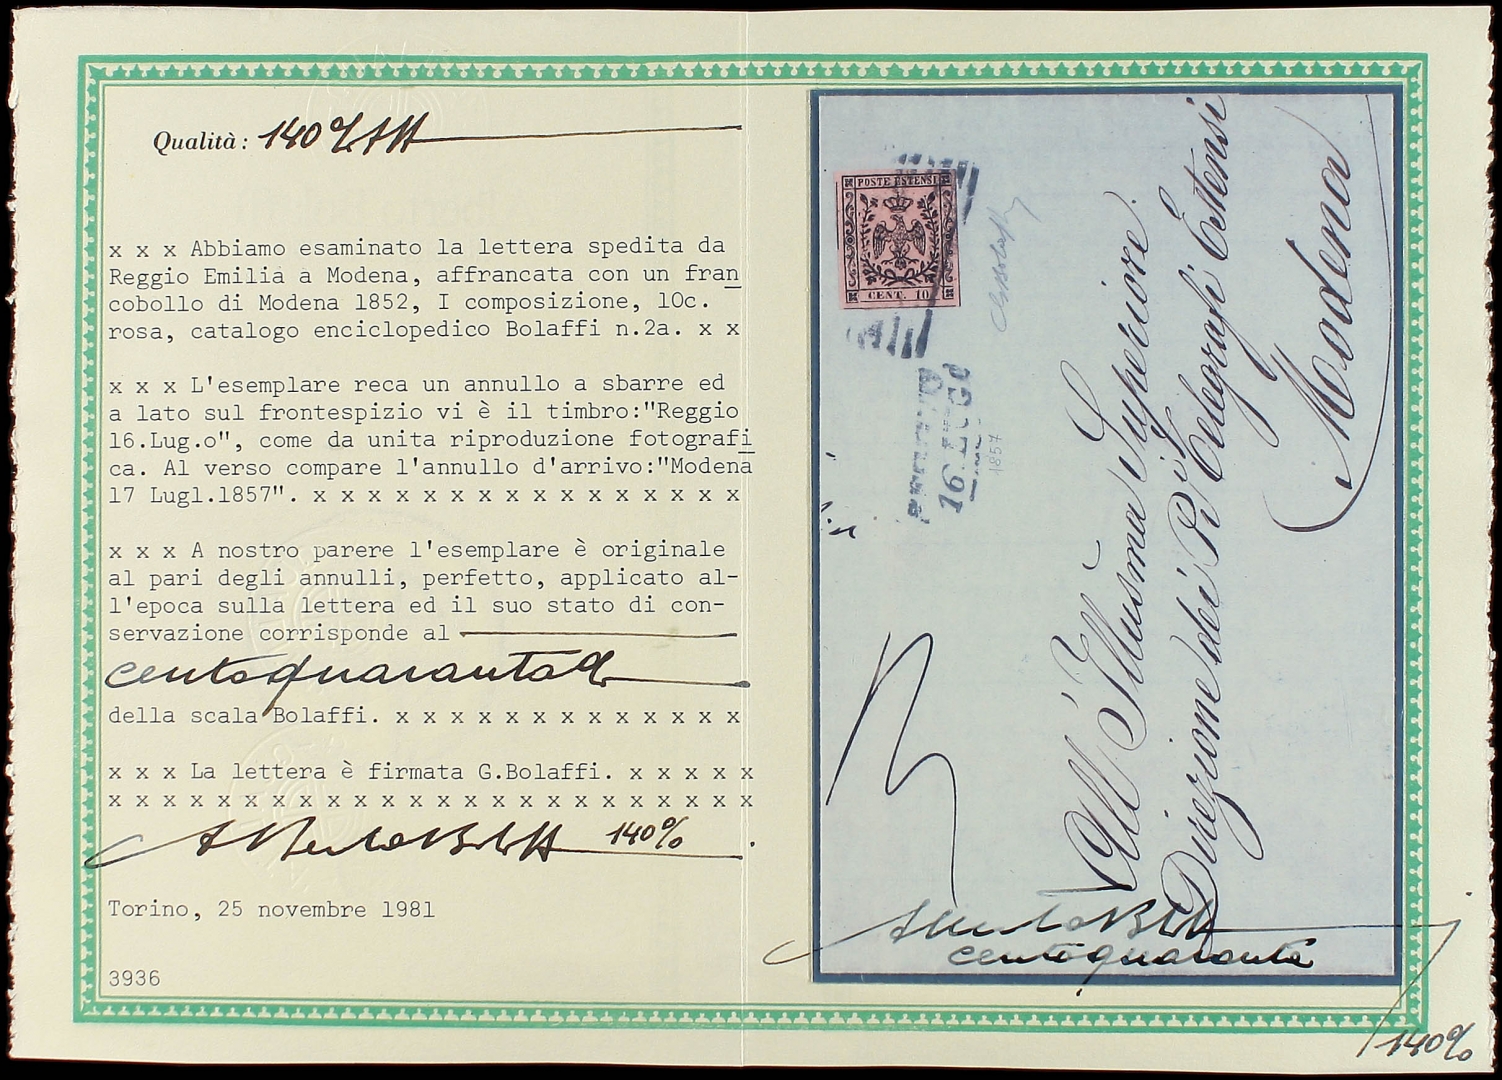 Qualità: 140%
x x x Abbiamo esaminato la lettera spedita da
Reggio Emilia a Modena, affrancata con un fran
cobollo di Modena 1852, I composizione, 10c.
rosa, catalogo enciclopedico Bolaffi n.2a. x x
x x x L'esemplare reca un annullo a sbarre ed
a lato sul frontespizio vi è il timbro:"Reggio
16.Lug.o", come da unita riproduzione fotografi
ca. Al verso compare l'annullo d'arrivo:"Modena
17 Lugl.1857". x x x x x x x x x x x x x x x x
x x x A nostro parere l'esemplare è originale
al pari degli annulli, perfetto, applicato al-
l'epoca sulla lettera ed il suo stato di con-
servazione corrisponde al
centoquaranta
della scala Bolaffi. x x x x x x x x x x x x x
x x x La lettera è firmata G.Bolaffi. x x x x x
x x x x x x x x x x x x x x x x x x x x x x x x
Alberto Bolaffi 140%
Torino, 25 novembre 1981
3936
POSTE ESTENSI
CENT. 10
16 LUG
1857
All'Illusmo Superiore
Direzione dei Ri Telegrafi Estensi
Modena
Alberto Bolaffi
centoquaranta
140%